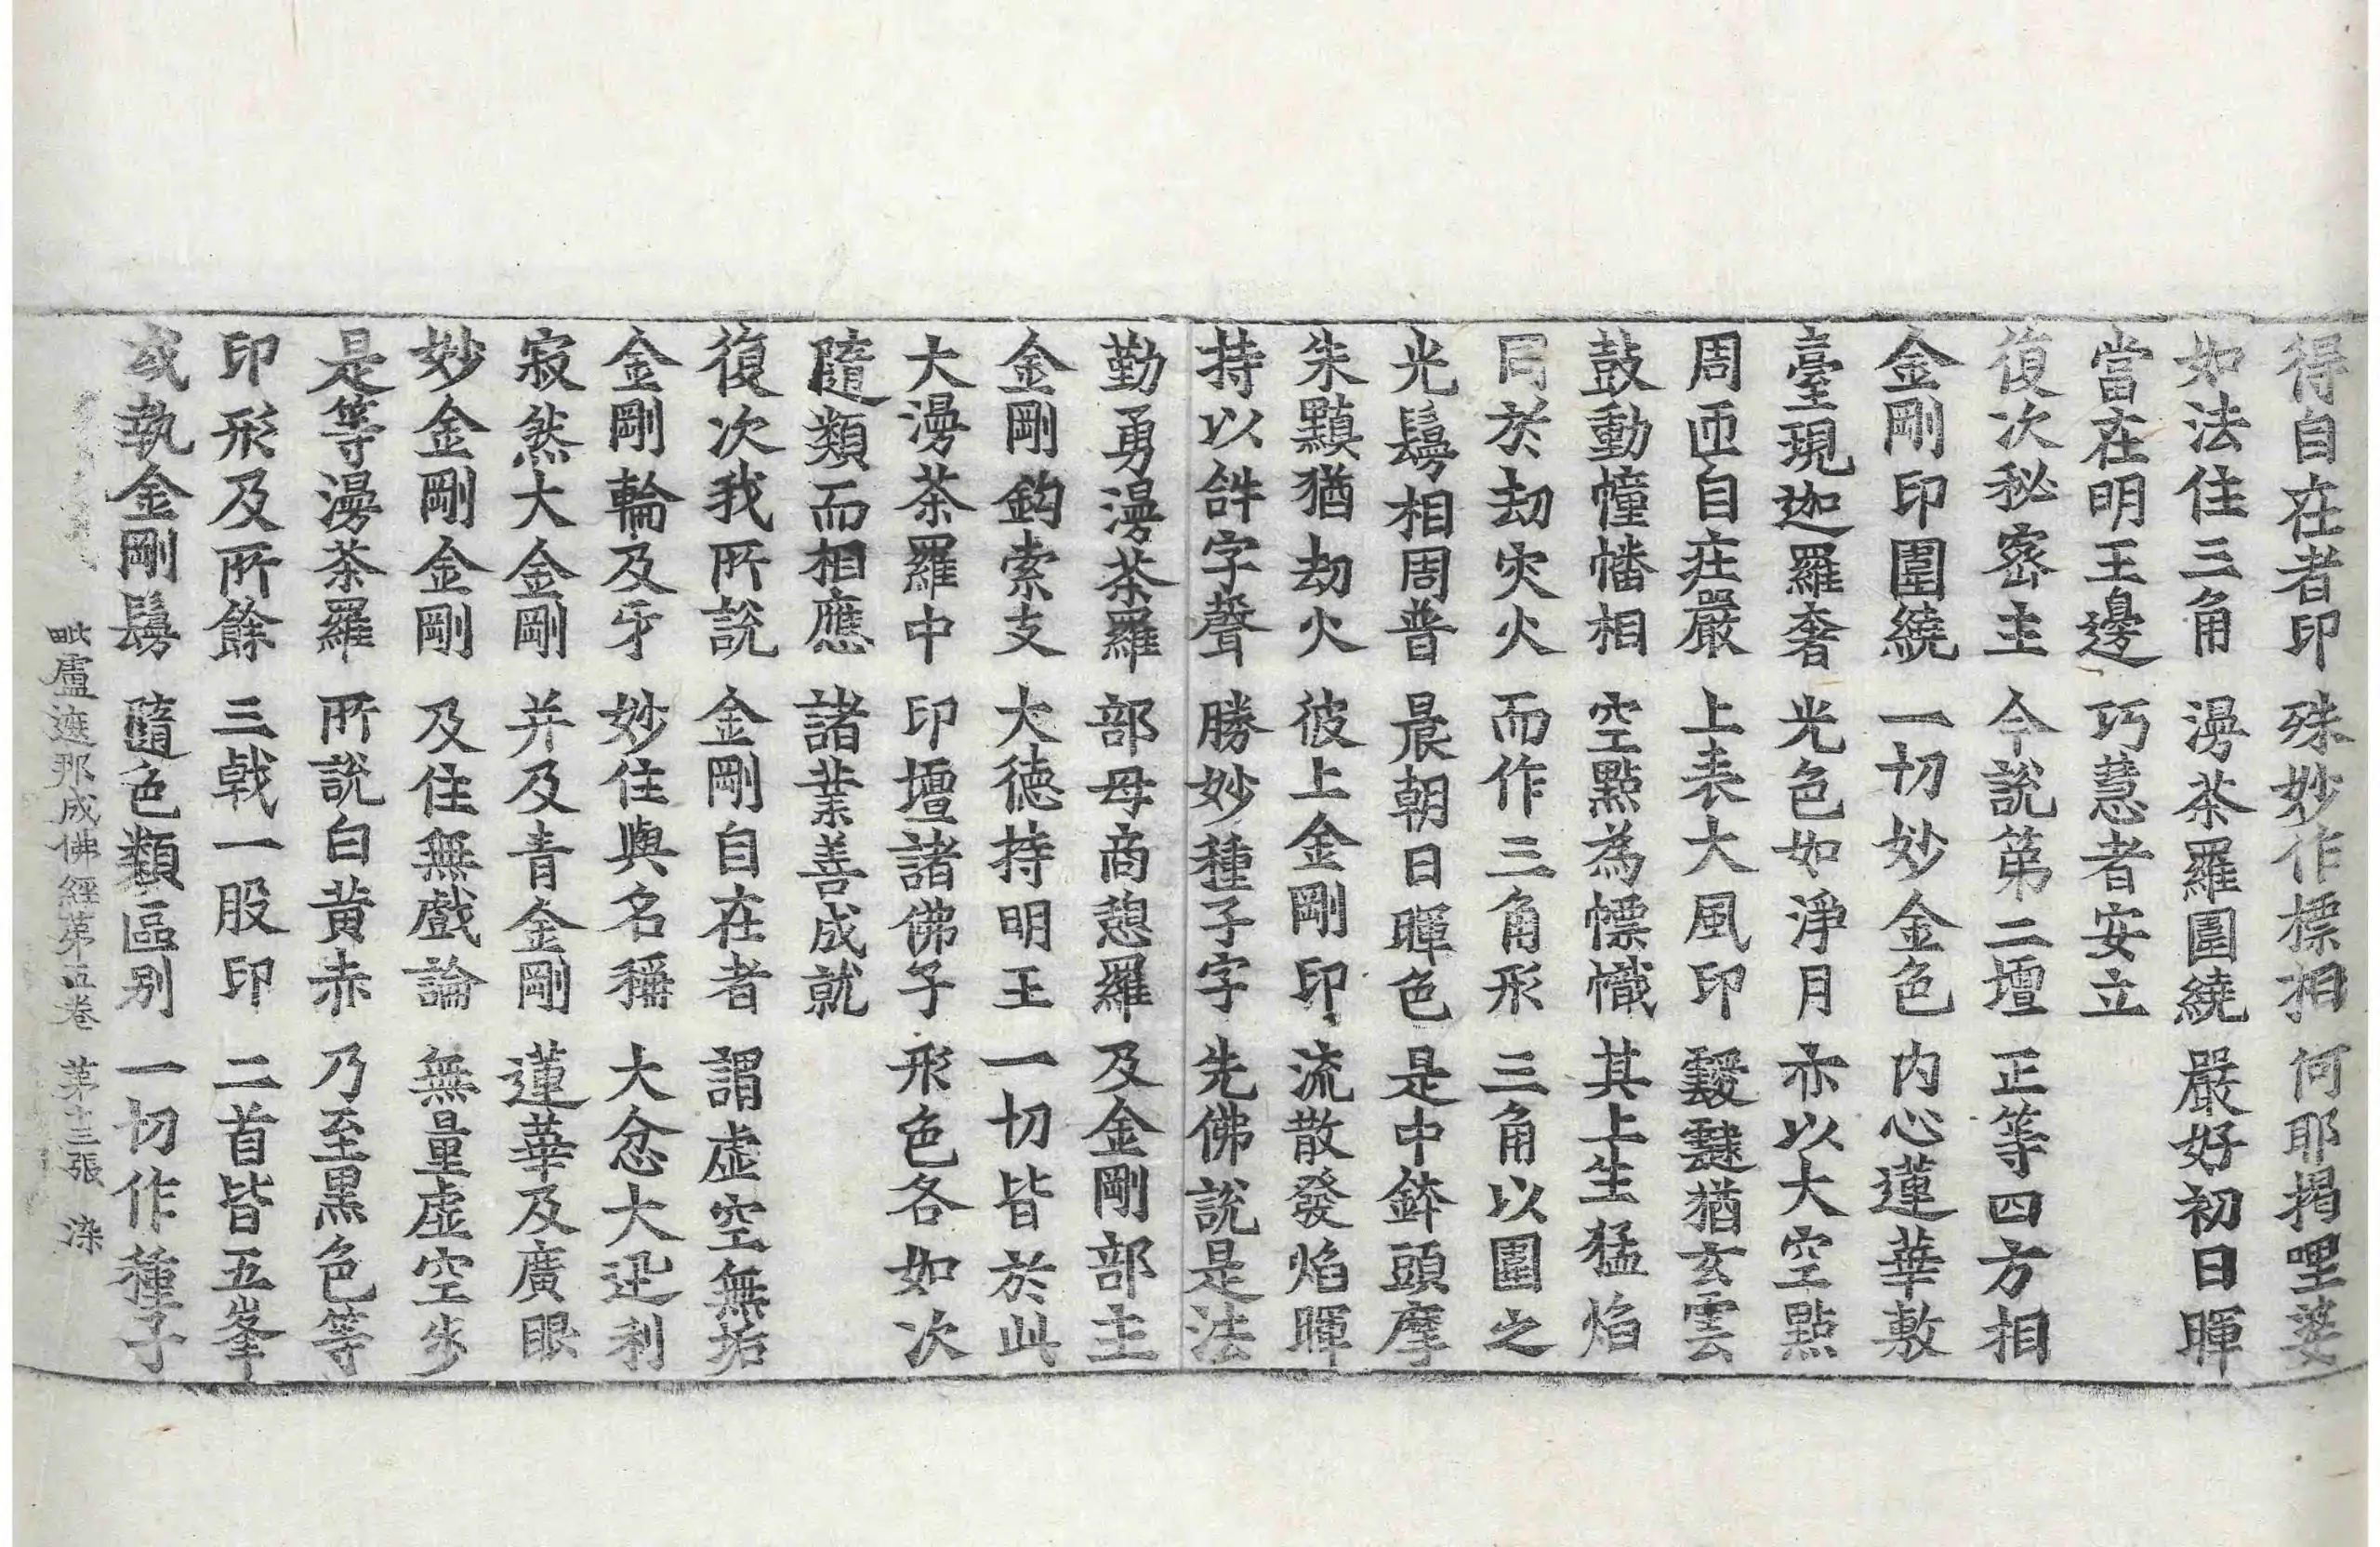 得自在者印　殊妙作標相　何耶揭哩婆
如法住三角　漫茶羅圍繞　嚴好初日暉
當在明王邊　巧慧者安立
復次秘密主　今說第二壇　正等四方相
金剛印圍繞　一切妙金色　内心蓮華敷
臺現迦羅奢　光色如淨月　亦以大空點
周匝自莊嚴　上表大風印　靉靆猶玄雲
鼓動幢幡相　空點為幖幟　其上生猛焰
同於劫灾火　而作三角形　三角以圍之
光鬘相周普　晨朝日暉色　是中鉢頭摩
朱黰猶劫火　彼上金剛印　流散發焰暉
持以𤙖字聲　勝妙種子字　先佛說是法
勤勇漫茶羅　部母商㳙羅　及金剛部主
金剛鈎索支　大德持明王　一切皆於此
大漫茶羅中　印壇諸佛子　形色各如次
隨類而相應　諸業善成就
復次我所說　金剛自在者　謂虛空無垢
金剛輪及牙　妙住與名稱　大忿大迅利
寂然大金剛　并及青金剛　蓮華及廣眼
妙金剛金剛　及住無戲論　無量虛空步
是等漫茶羅　所說白黃赤　乃至黑色等
印形及所餘　三戟一股印　二首皆五峯
或執金剛鬘　隨色類區别　一切作種子
毗盧遮那成佛經第五卷　第十三張　染